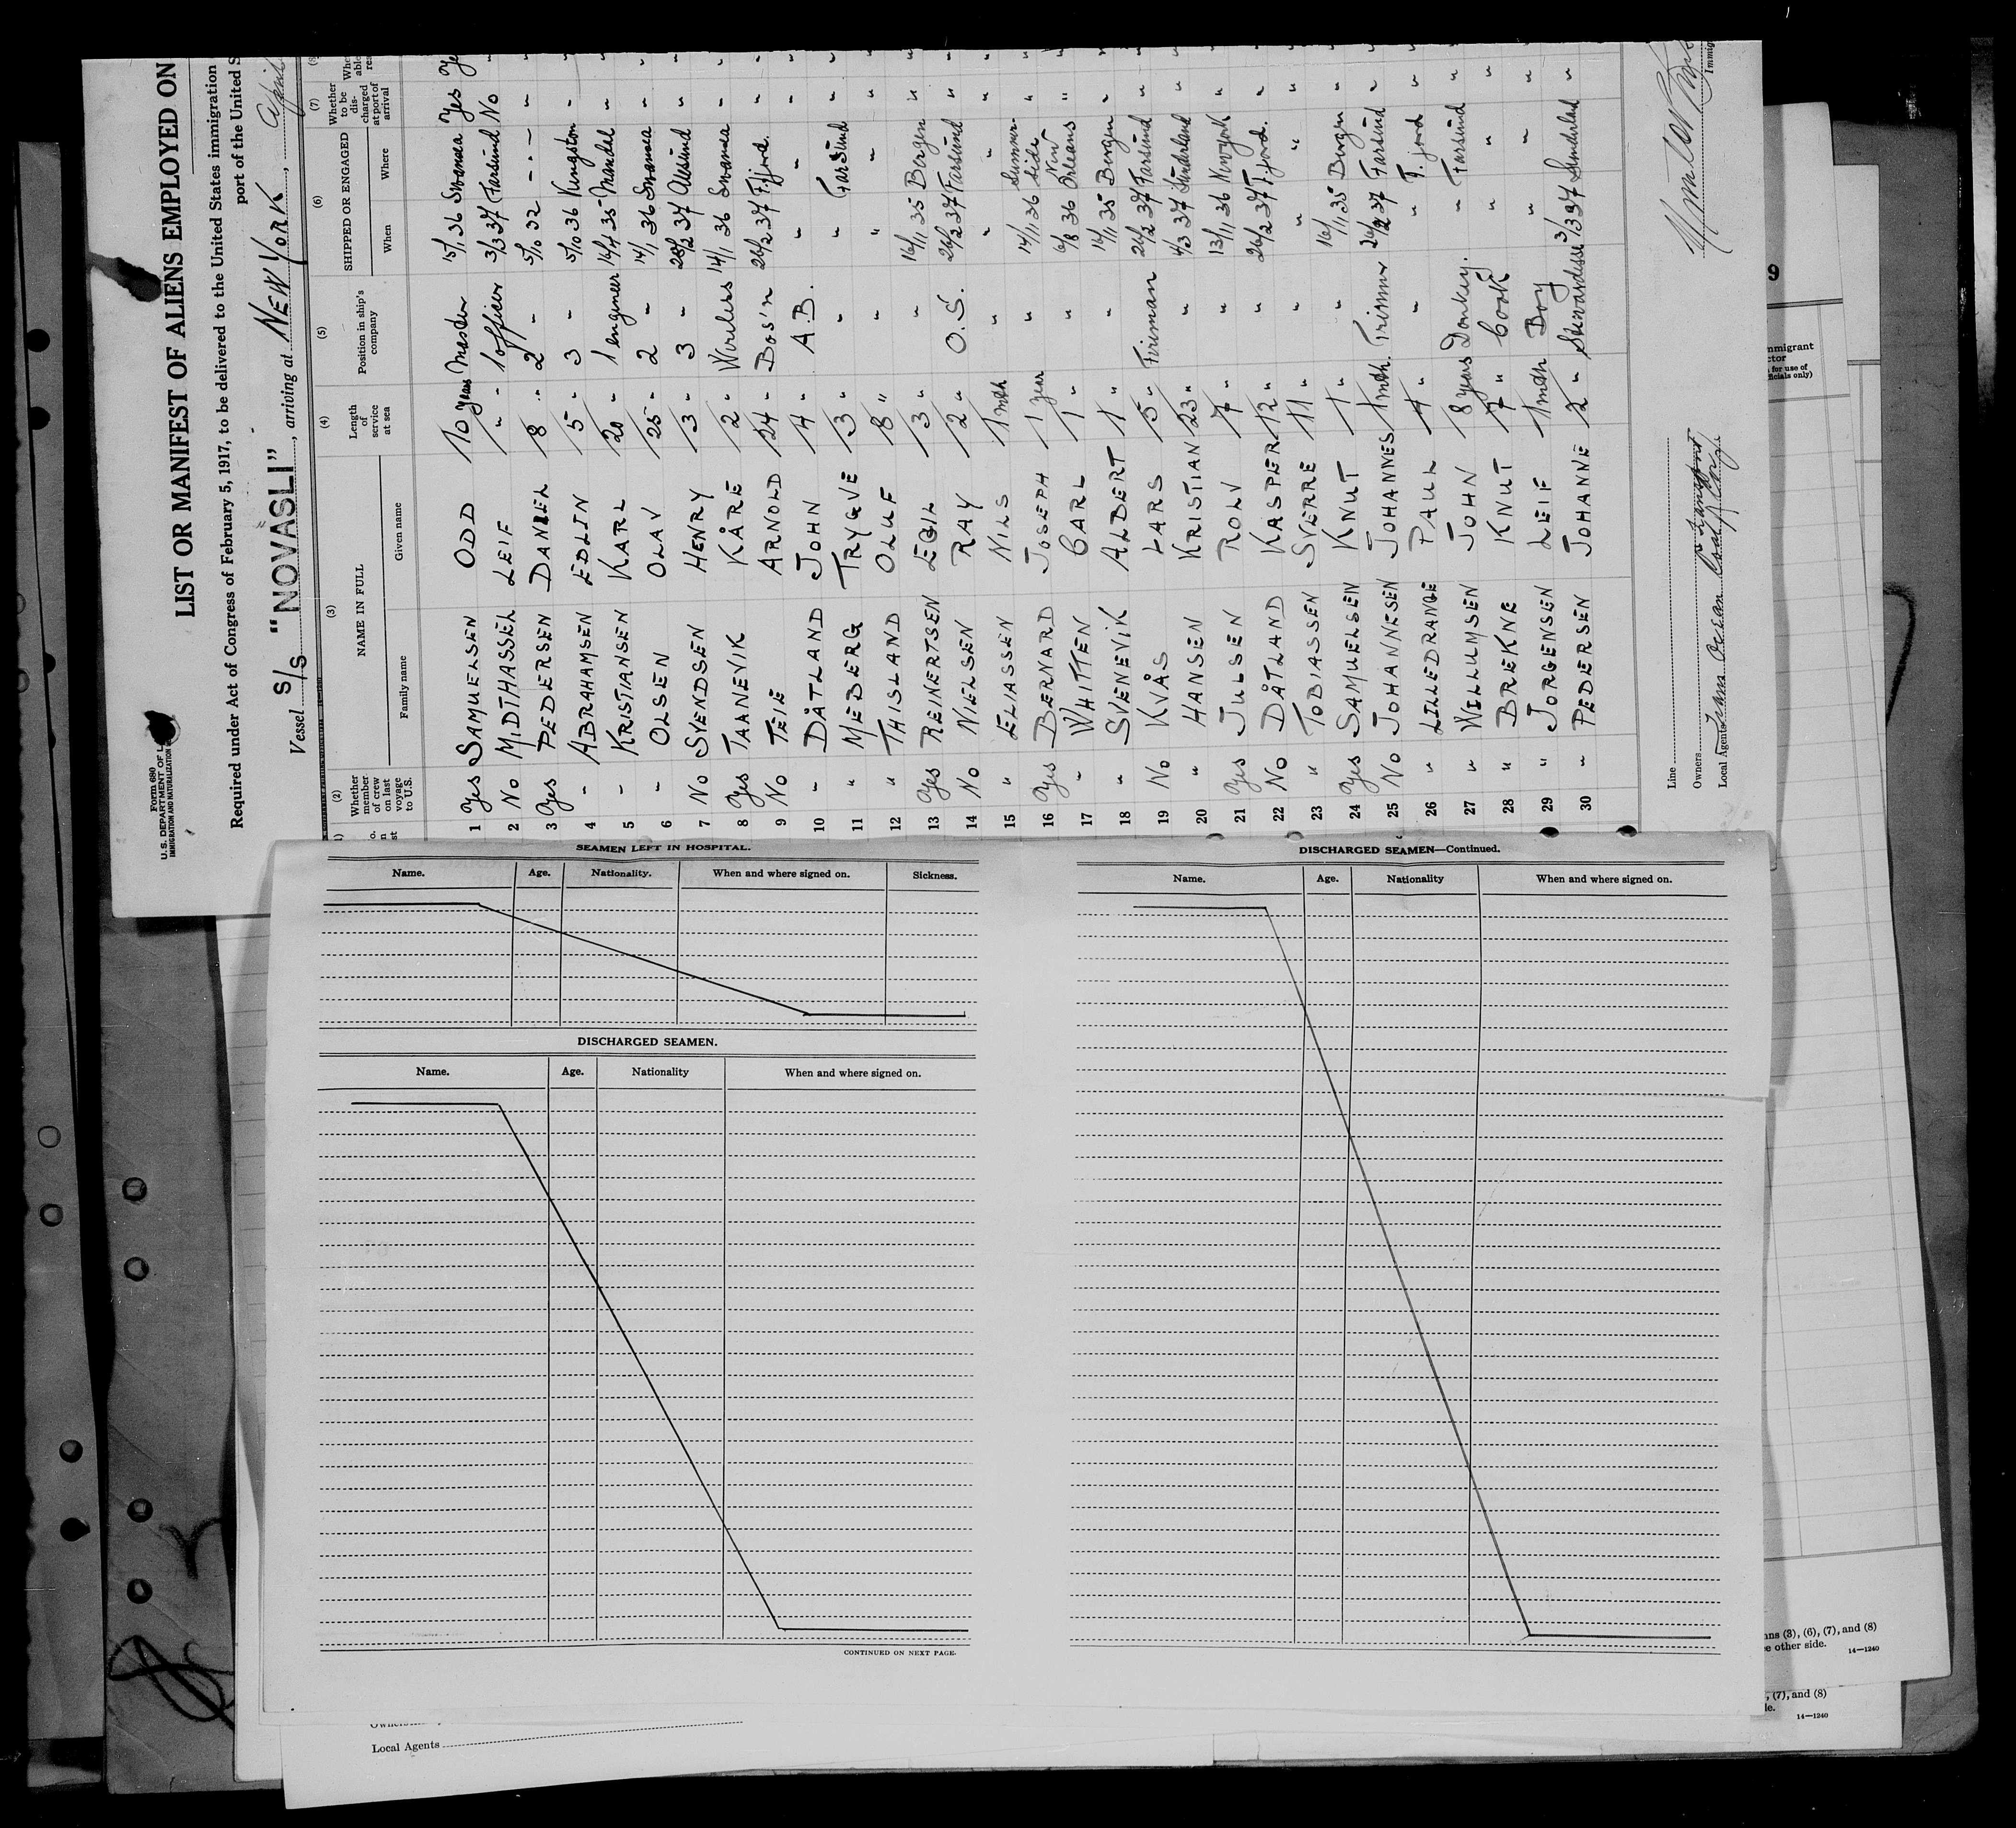 Form 680
U.S. DEPARTMENT OF L
IMMIGRATION AND NATURALIZATION
LIST OR MANIFEST OF ALIENS EMPLOYED ON
Required under Act of Congress of February 5, 1917, to be delivered to the United States immigration
port of the United S
Vessel S/S "NOVASLI", arriving at NEW YORK,
(2) (3) (4) (5) (6) (7)
Whether member of crew on last voyage to U.S. NAME IN FULL Length of service at sea Position in ship's company SHIPPED OR ENGAGED Whether to be discharged at port of arrival
Family name Given name When Where
1 Yes SAMUELSEN ODD 10 years Master 15/1 36 Swansea Yes
2 No MIDTHASSEL LEIF " " 1 officer 3/3 37 Farsund No
3 Yes PEDERSEN DANIEL 8 " 2 " 5/10 32 " "
4 " ABRAHAMSEN EDLIN 5 " 3 " 5/10 36 Kingston "
5 " KRISTIANSEN KARL 20 " 1 engineer 14/4 35 Mandal "
6 " OLSEN OLAV 25 " 2 " 14/1 36 Swansea "
7 No SVENDSEN HENRY 3 " 3 " 28/2 37 Alesund "
8 Yes TAANEVIK KÅRE 2 " Wireless 14/1 36 Swansea "
9 No TEIE ARNOLD 24 " Bos'n 26/2 37 F.fjord. "
10 " DÅTLAND JOHN 4 " A.B. " " "
11 " MEBERG TRYGVE 3 " " " Farsund "
12 " THISLAND OLUF 8 " " " " "
13 Yes REINERTSEN EGIL 3 " " 16/11 35 Bergen "
14 No NIELSEN RAY 2 " O.S. 26/2 37 Farsund "
15 " ELIASSEN NILS 1 mth " " " "
16 Yes BERNARD JOSEPH 1 year " 14/11 36 Summerside "
17 " WHITTEN CARL 1 " " 6/8 36 New Orleans "
18 " SVENEVIK ALBERT 1 " " 16/11 35 Bergen "
19 No KVÅS LARS 5 " Fireman 26/2 37 Farsund "
20 " HANSEN KRISTIAN 23 " " 4/3 37 Sunderland "
21 Yes JULSEN ROLV 7 " " 13/11 36 Newyork "
22 No DÅTLAND KASPER 12 " " 26/2 37 F.fjord. "
23 " TOBIASSEN SVERRE 11 " " " " "
24 Yes SAMUELSEN KNUT 1 " " 16/11 35 Bergen "
25 No JOHANNESEN JOHANNES 1 mth. Trimmer 26/2 37 Farsund "
26 " LILLEDRANGE PAUL 4 " " " F.fjord "
27 " WILLUMSEN JOHN 8 years Donkey. " Farsund "
28 " BREKNE KNUT 7 " Cook " " "
29 " JORGENSEN LEIF 1 mth Boy " " "
30 " PEDERSEN JOHANNE 2 " Stewardess 3/3 37 Sunderland "
Line
Owners
Local Agents
SEAMEN LEFT IN HOSPITAL.
Name. Age. Nationality. When and where signed on. Sickness.
DISCHARGED SEAMEN.
Name. Age. Nationality When and where signed on.
CONTINUED ON NEXT PAGE.
DISCHARGED SEAMEN—Continued.
Name. Age. Nationality When and where signed on.
Local Agents
9
nmigrant
ctor
for use of
ficials only)
ns (3), (6), (7), and (8)
e other side.
14—1240
, (7), and (8)
le.
14—1240